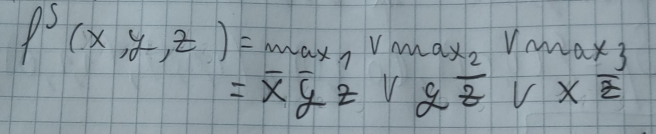 f^S (x, y, z) = max_1 ∨ max_2 ∨ max_3
= x̄ ȳ z ∨ y z̄ ∨ x z̄